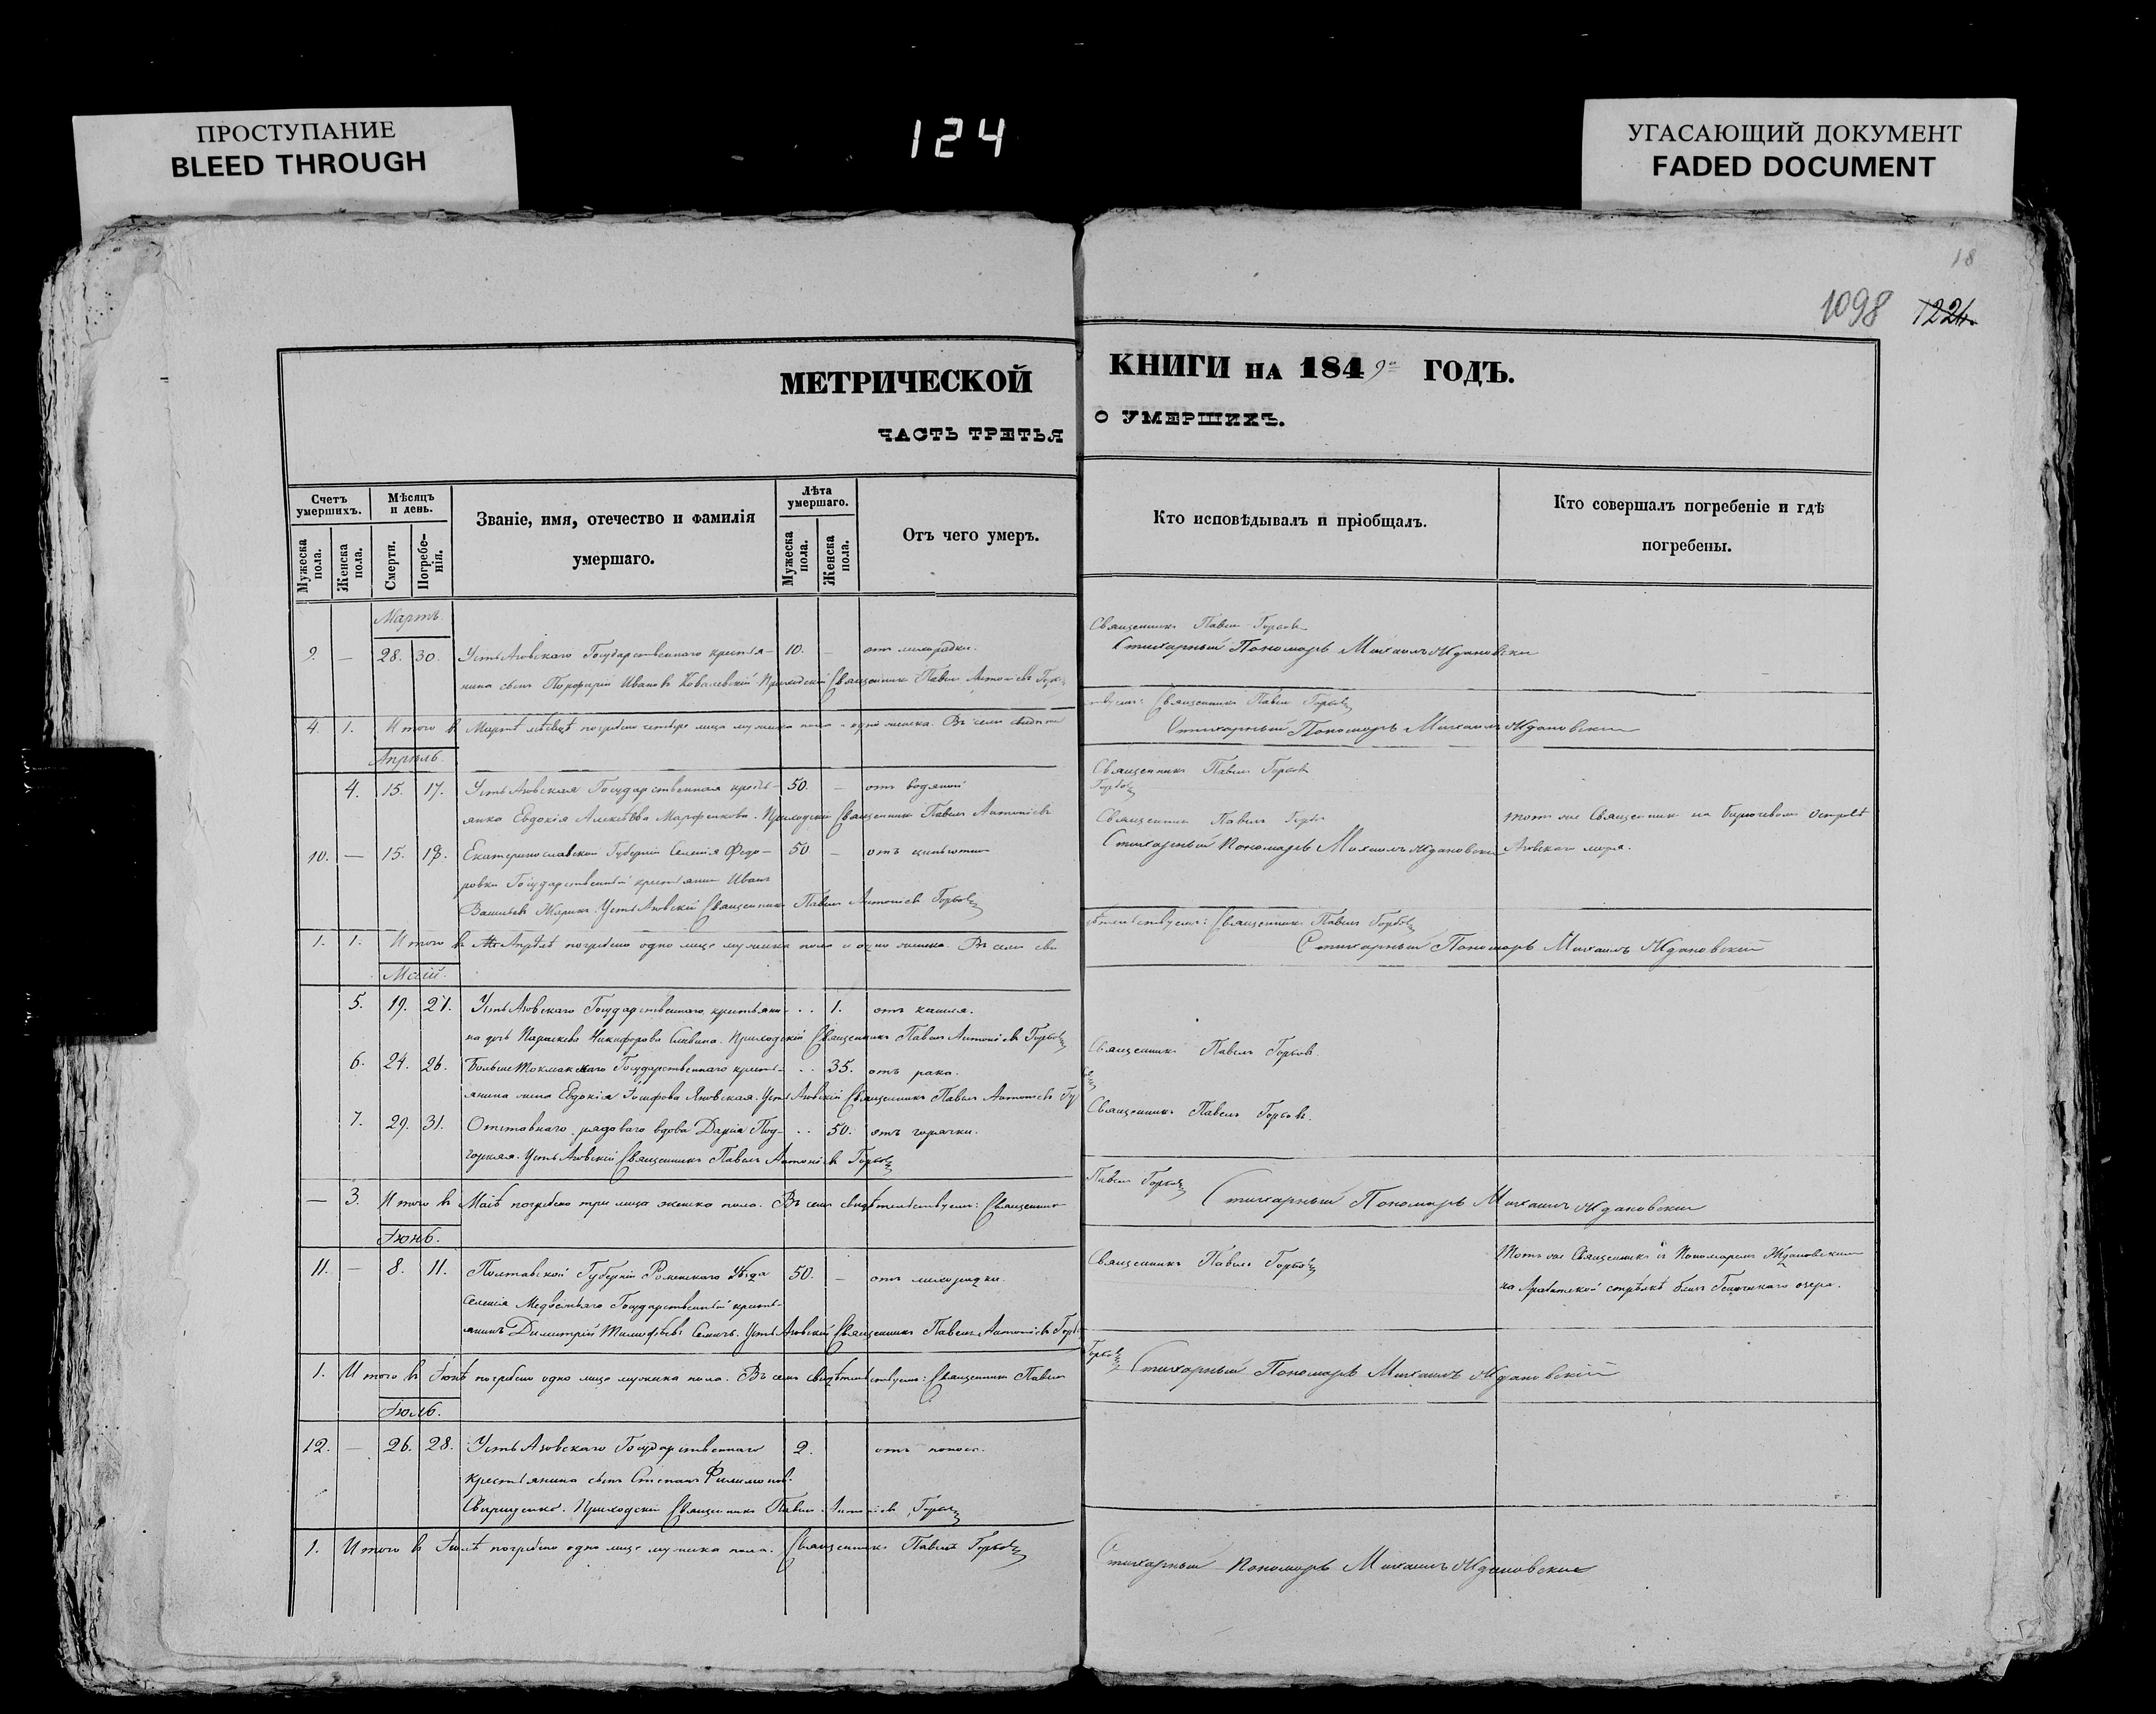 ПРОСТУПАНИЕ
BLEED THROUGH
124
УГАСАЮЩИЙ ДОКУМЕНТ
FADED DOCUMENT
18
1098 1224
МЕТРИЧЕСКОЙ КНИГИ НА 1849го ГОДЪ.
ЧАСТЬ ТРЕТЬЯ О УМЕРШИХЪ.
Счетъ умершихъ.
Мужеска пола.
Женска пола.
Мѣсяцъ и день.
Смерти.
Погребенія.
Званіе, имя, отечество и фамилія умершаго.
Лѣта умершаго.
Мужеска пола.
Женска пола.
Отъ чего умеръ.
Кто исповѣдывалъ и пріобщалъ.
Кто совершалъ погребеніе и гдѣ погребены.
Мартъ.
Священникъ Павелъ Горбовъ
9. — 28. 30. Усть Азовскаго Государственнаго крестья- 10. — отъ лихорадки. Стихарный Пономарь Михаилъ Ждановскій
нина сынъ Порфирій Ивановъ Ковалевскій. Приходскій Священникъ Павелъ Антоніевъ
4. 1. Итого въ Мартѣ мѣсяцѣ погребено четыре лица мужеска пола и одно женска. Въ семъ свидѣтельствуемъ: Священникъ Павелъ Горбовъ
Стихарный Пономарь Михаилъ Ждановскій
Апрѣль.
Священникъ Павелъ Горбовъ
4. 15. 17. Усть Азовская Государственная кресть- 50. — отъ водяной Горбовъ
янка Евдокія Алексѣева Марфенкова. Приходскій Священникъ Павелъ Антоніевъ
Священникъ Павелъ Горбовъ тотъ же Священникъ на Бирючевомъ Островѣ
10. — 15. 18. Екатеринославской Губерніи Селенія Федо- 50 — отъ цынготной Стихарный Пономарь Михаилъ Ждановскій Азовскаго моря.
ровки Государственный крестьянинъ Иванъ
Васильевъ Жарикъ. Усть Азовскій Священникъ Павелъ Антоніевъ Горбовъ
1. 1. Итого въ Апрѣлѣ погребено одно лице мужеска пола и одно женска. Въ семъ свидѣтельствуемъ: Священникъ Павелъ Горбовъ
Стихарный Пономарь Михаилъ Ждановскій
Май.
5. 19. 21. Усть Азовскаго Государственнаго крестьяни- .. 1. отъ кашля.
на дочь Параскева Никифорова. Приходскій Священникъ Павелъ Антоніевъ Горбовъ
Священникъ Павелъ Горбовъ.
6. 24. 26. Больше Токмакскаго Государственнаго кресть- .. 35. отъ рака.
янина жена Евдокія Іосифова Яновская. Усть Азовскій Священникъ Павелъ Антоніевъ
Священникъ Павелъ Горбовъ.
7. 29. 31. Отставнаго рядоваго вдова Дарія Под- .. 50. отъ горячки.
горная. Усть Азовскій Священникъ Павелъ Антоніевъ Горбовъ
— 3. Итого въ Маѣ погребено три лица женска пола. Въ семъ свидѣтельствуемъ: Священникъ Павелъ Горбовъ Стихарный Пономарь Михаилъ Ждановскій
Іюнь.
11. — 8. 11. Полтавской Губерніи Роменскаго Уѣзда 50. — отъ лихорадки. Священникъ Павелъ Горбовъ Тотъ же Священникъ съ Пономаремъ Ждановскимъ
на Арабатской стрѣлкѣ близъ Геническаго озера.
Селенія Медвежьяго Государственный кресть-
янинъ Димитрій Тимофѣевъ. Усть Азовскій Священникъ Павелъ Антоніевъ
1. Итого въ Іюнѣ погребено одно лице мужеска пола. Въ семъ свидѣтельствуемъ: Священникъ Павелъ Горбовъ Стихарный Пономарь Михаилъ Ждановскій
Іюль.
12. — 26. 28. Усть Азовскаго Государственнаго 2. отъ поноса.
крестьянина сынъ Степанъ Филимоновъ
Свириденко. Приходскій Священникъ Павелъ Антоніевъ Горбовъ
1. Итого въ Іюлѣ погребено одно лице мужеска пола. Священникъ Павелъ Горбовъ
Стихарный Пономарь Михаилъ Ждановскій